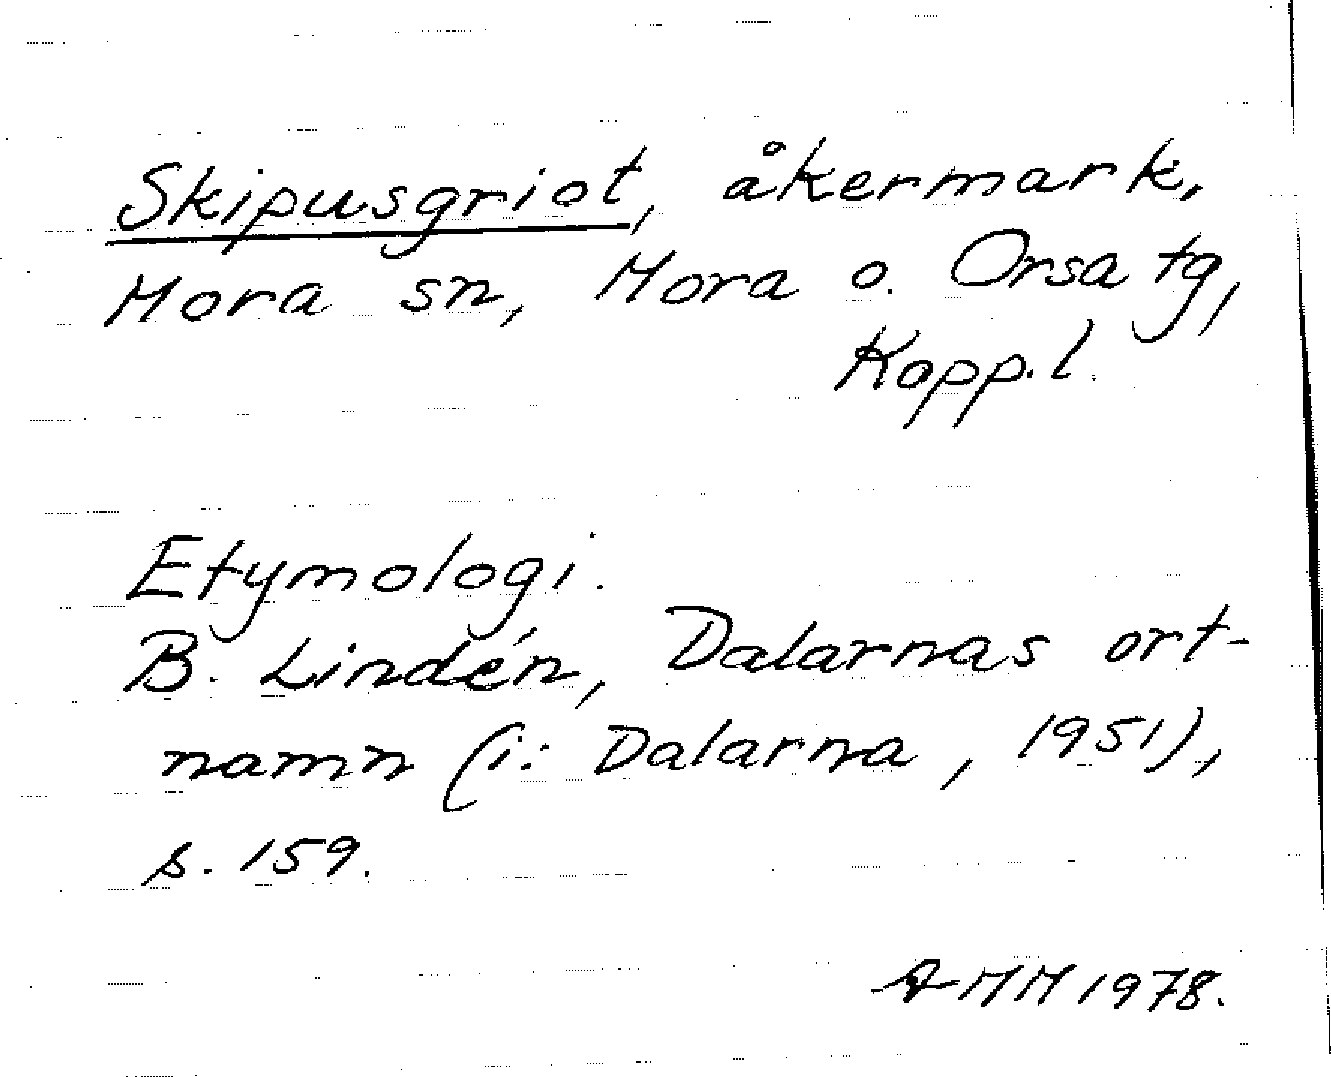 Skipusgriot, åkermark,
Mora sn, Mora o. Orsa tg,
Kopp.l.
Etymologi.
B. Lindén, Dalarnas ort-
namn (i: Dalarna, 1951),
s. 159.
AMM 1978.